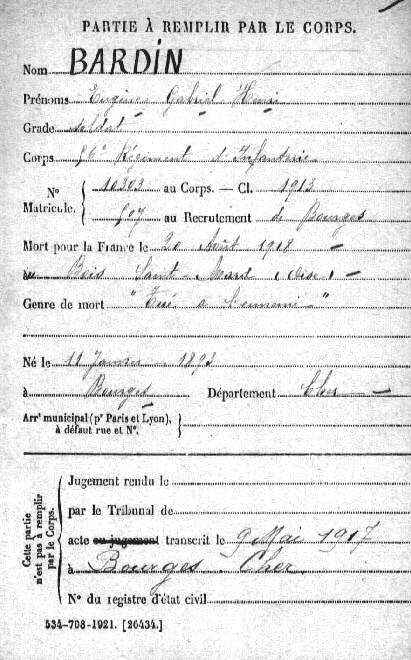 PARTIE À REMPLIR PAR LE CORPS.
Nom BARDIN
Prénoms Eugène Gabriel Henri
Grade soldat
Corps Régiment d'Infanterie
N° Matricule. 10303 au Corps. — Cl. 1913
507 au Recrutement de Bourges
Mort pour la France le 20 Août 1918
au Bois Saint-Mard (Oise)
Genre de mort "Tué à l'ennemi"
Né le 11 Janvier 1893
à Bourges Département Cher
Arrt municipal (pr Paris et Lyon),
à défaut rue et N°.
Cette partie
n'est pas à remplir
par le Corps.
Jugement rendu le
par le Tribunal de
acte ou jugement transcrit le 9 Mai 1917
à Bourges Cher
N° du registre d'état civil
534-708-1921. [26434.]